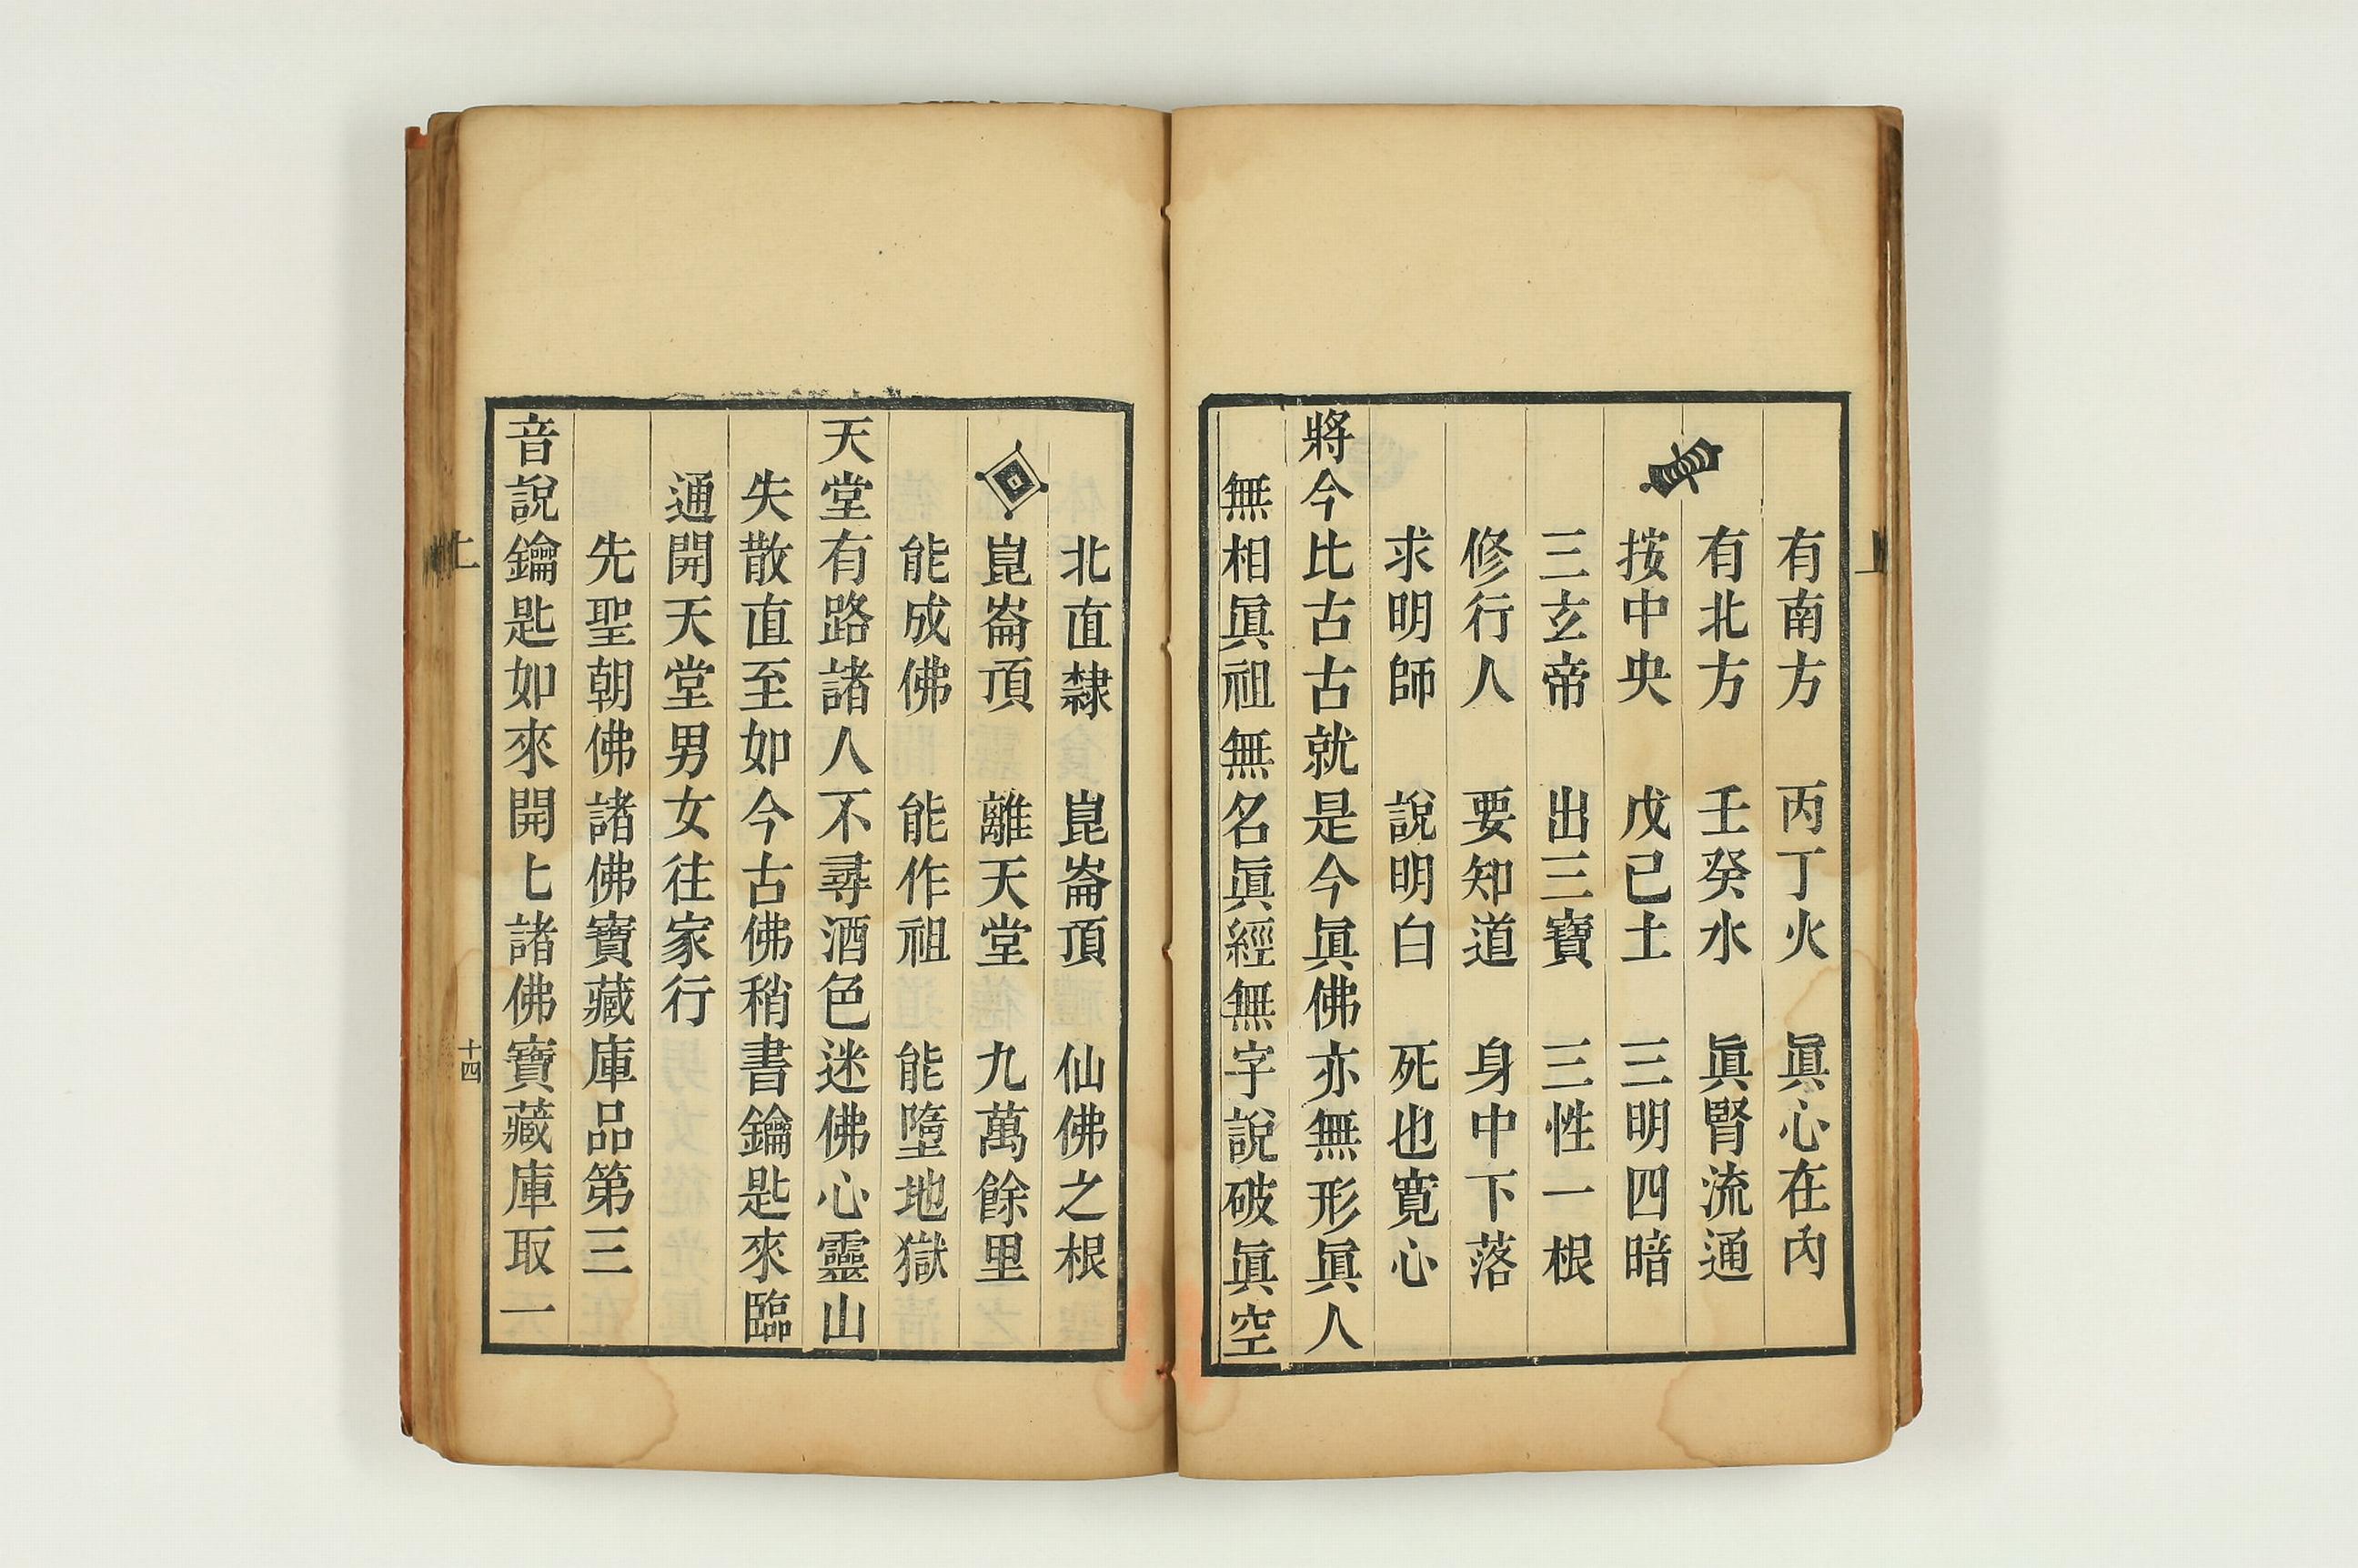 有南方　丙丁火　眞心在內
有北方　壬癸水　眞腎流通
按中央　戊己土　三明四暗
三玄帝　出三寶　三性一根
修行人　要知道　身中下落
求明師　說明白　死也寬心
將今比古古就是今眞佛亦無形眞人
無相眞祖無名眞經無字說破眞空
北直隸　崑崙頂　仙佛之根
崑崙頂　離天堂　九萬餘里
能成佛　能作祖　能墮地獄
天堂有路諸人不尋酒色迷佛心靈山
失散直至如今古佛稍書鑰匙來臨
通開天堂男女往家行
先聖朝佛諸佛寶藏庫品第三
音說鑰匙如來開七諸佛寶藏庫取一
上
十四